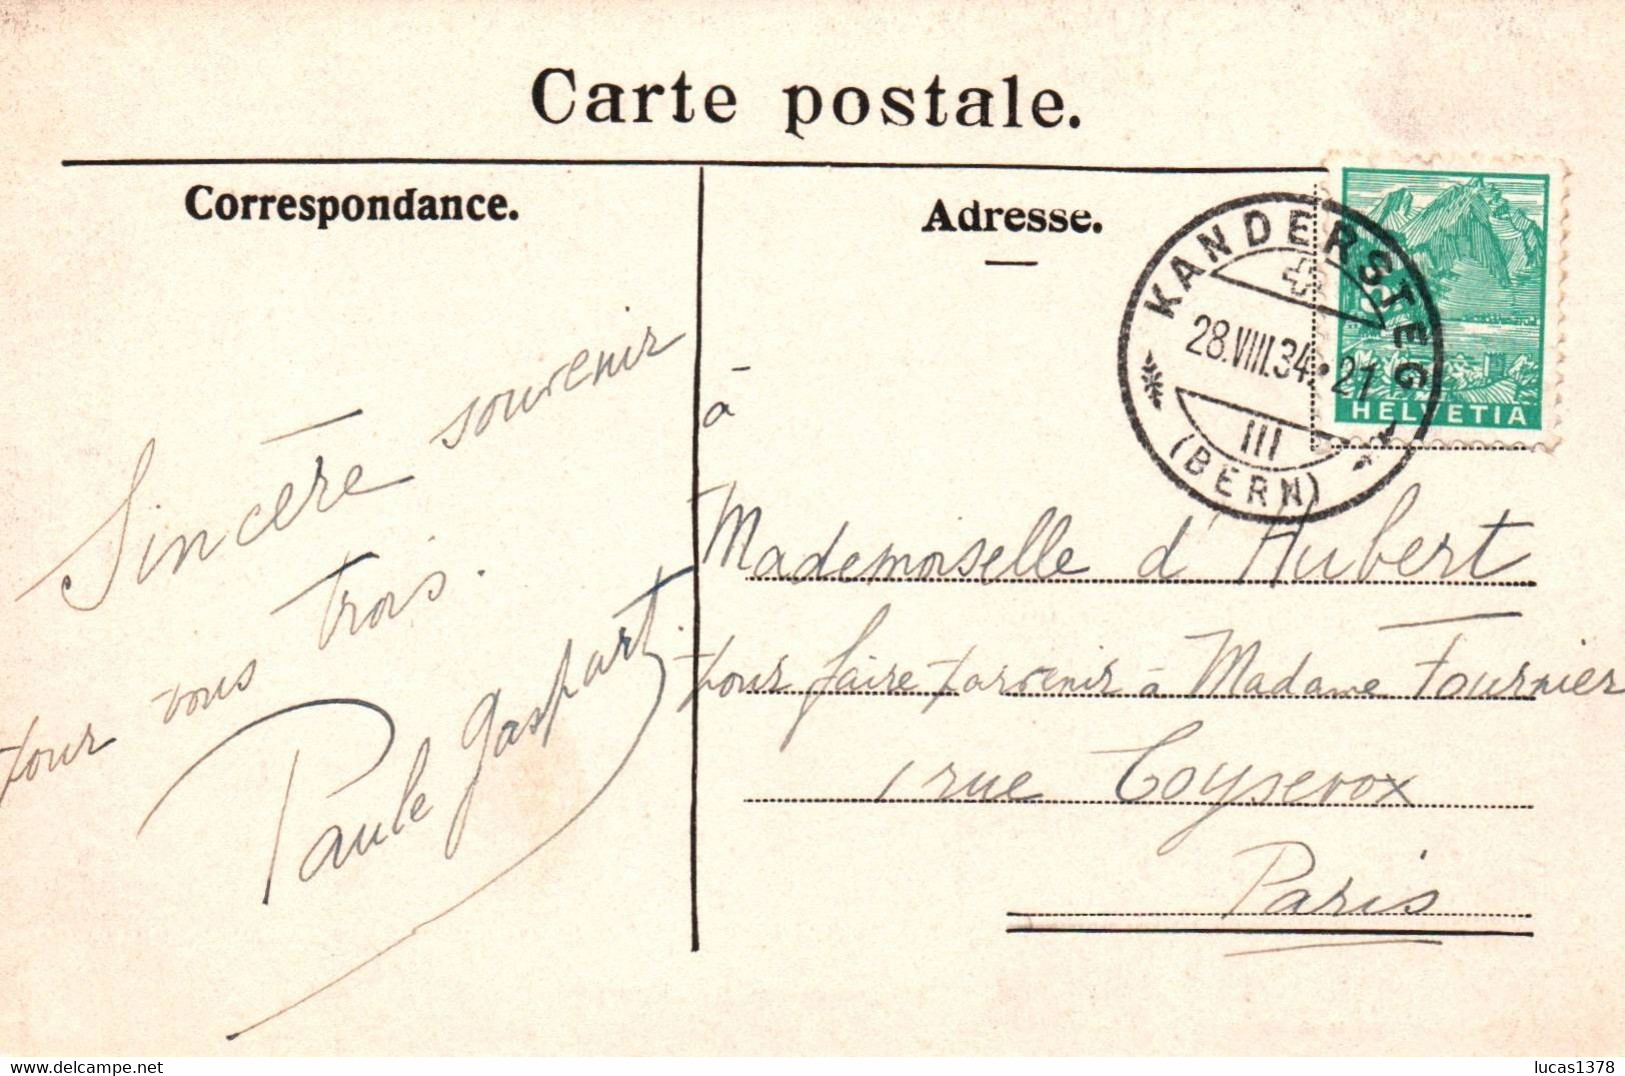 Carte postale.
Correspondance.
Adresse.
KANDERSTEG
28.VIII.34.21
III
(BERN)
HELVETIA
Sincère souvenir
pour vous trois.
Paule Gaspart.
à
Mademoiselle d'Hubert
pour faire parvenir à Madame Fournier
1 rue Coysevox
Paris
delcampe.net
lucas1378